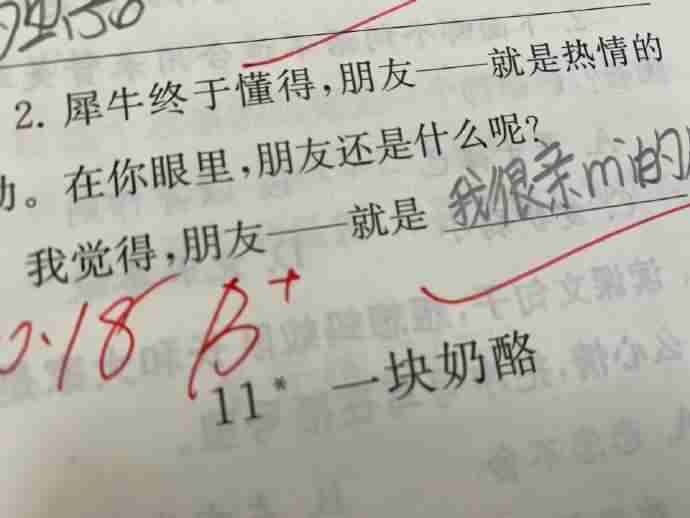 2. 犀牛终于懂得,朋友——就是热情的
。在你眼里,朋友还是什么呢?
我觉得,朋友——就是 我很亲mi的
.18 B+
11* 一块奶酪